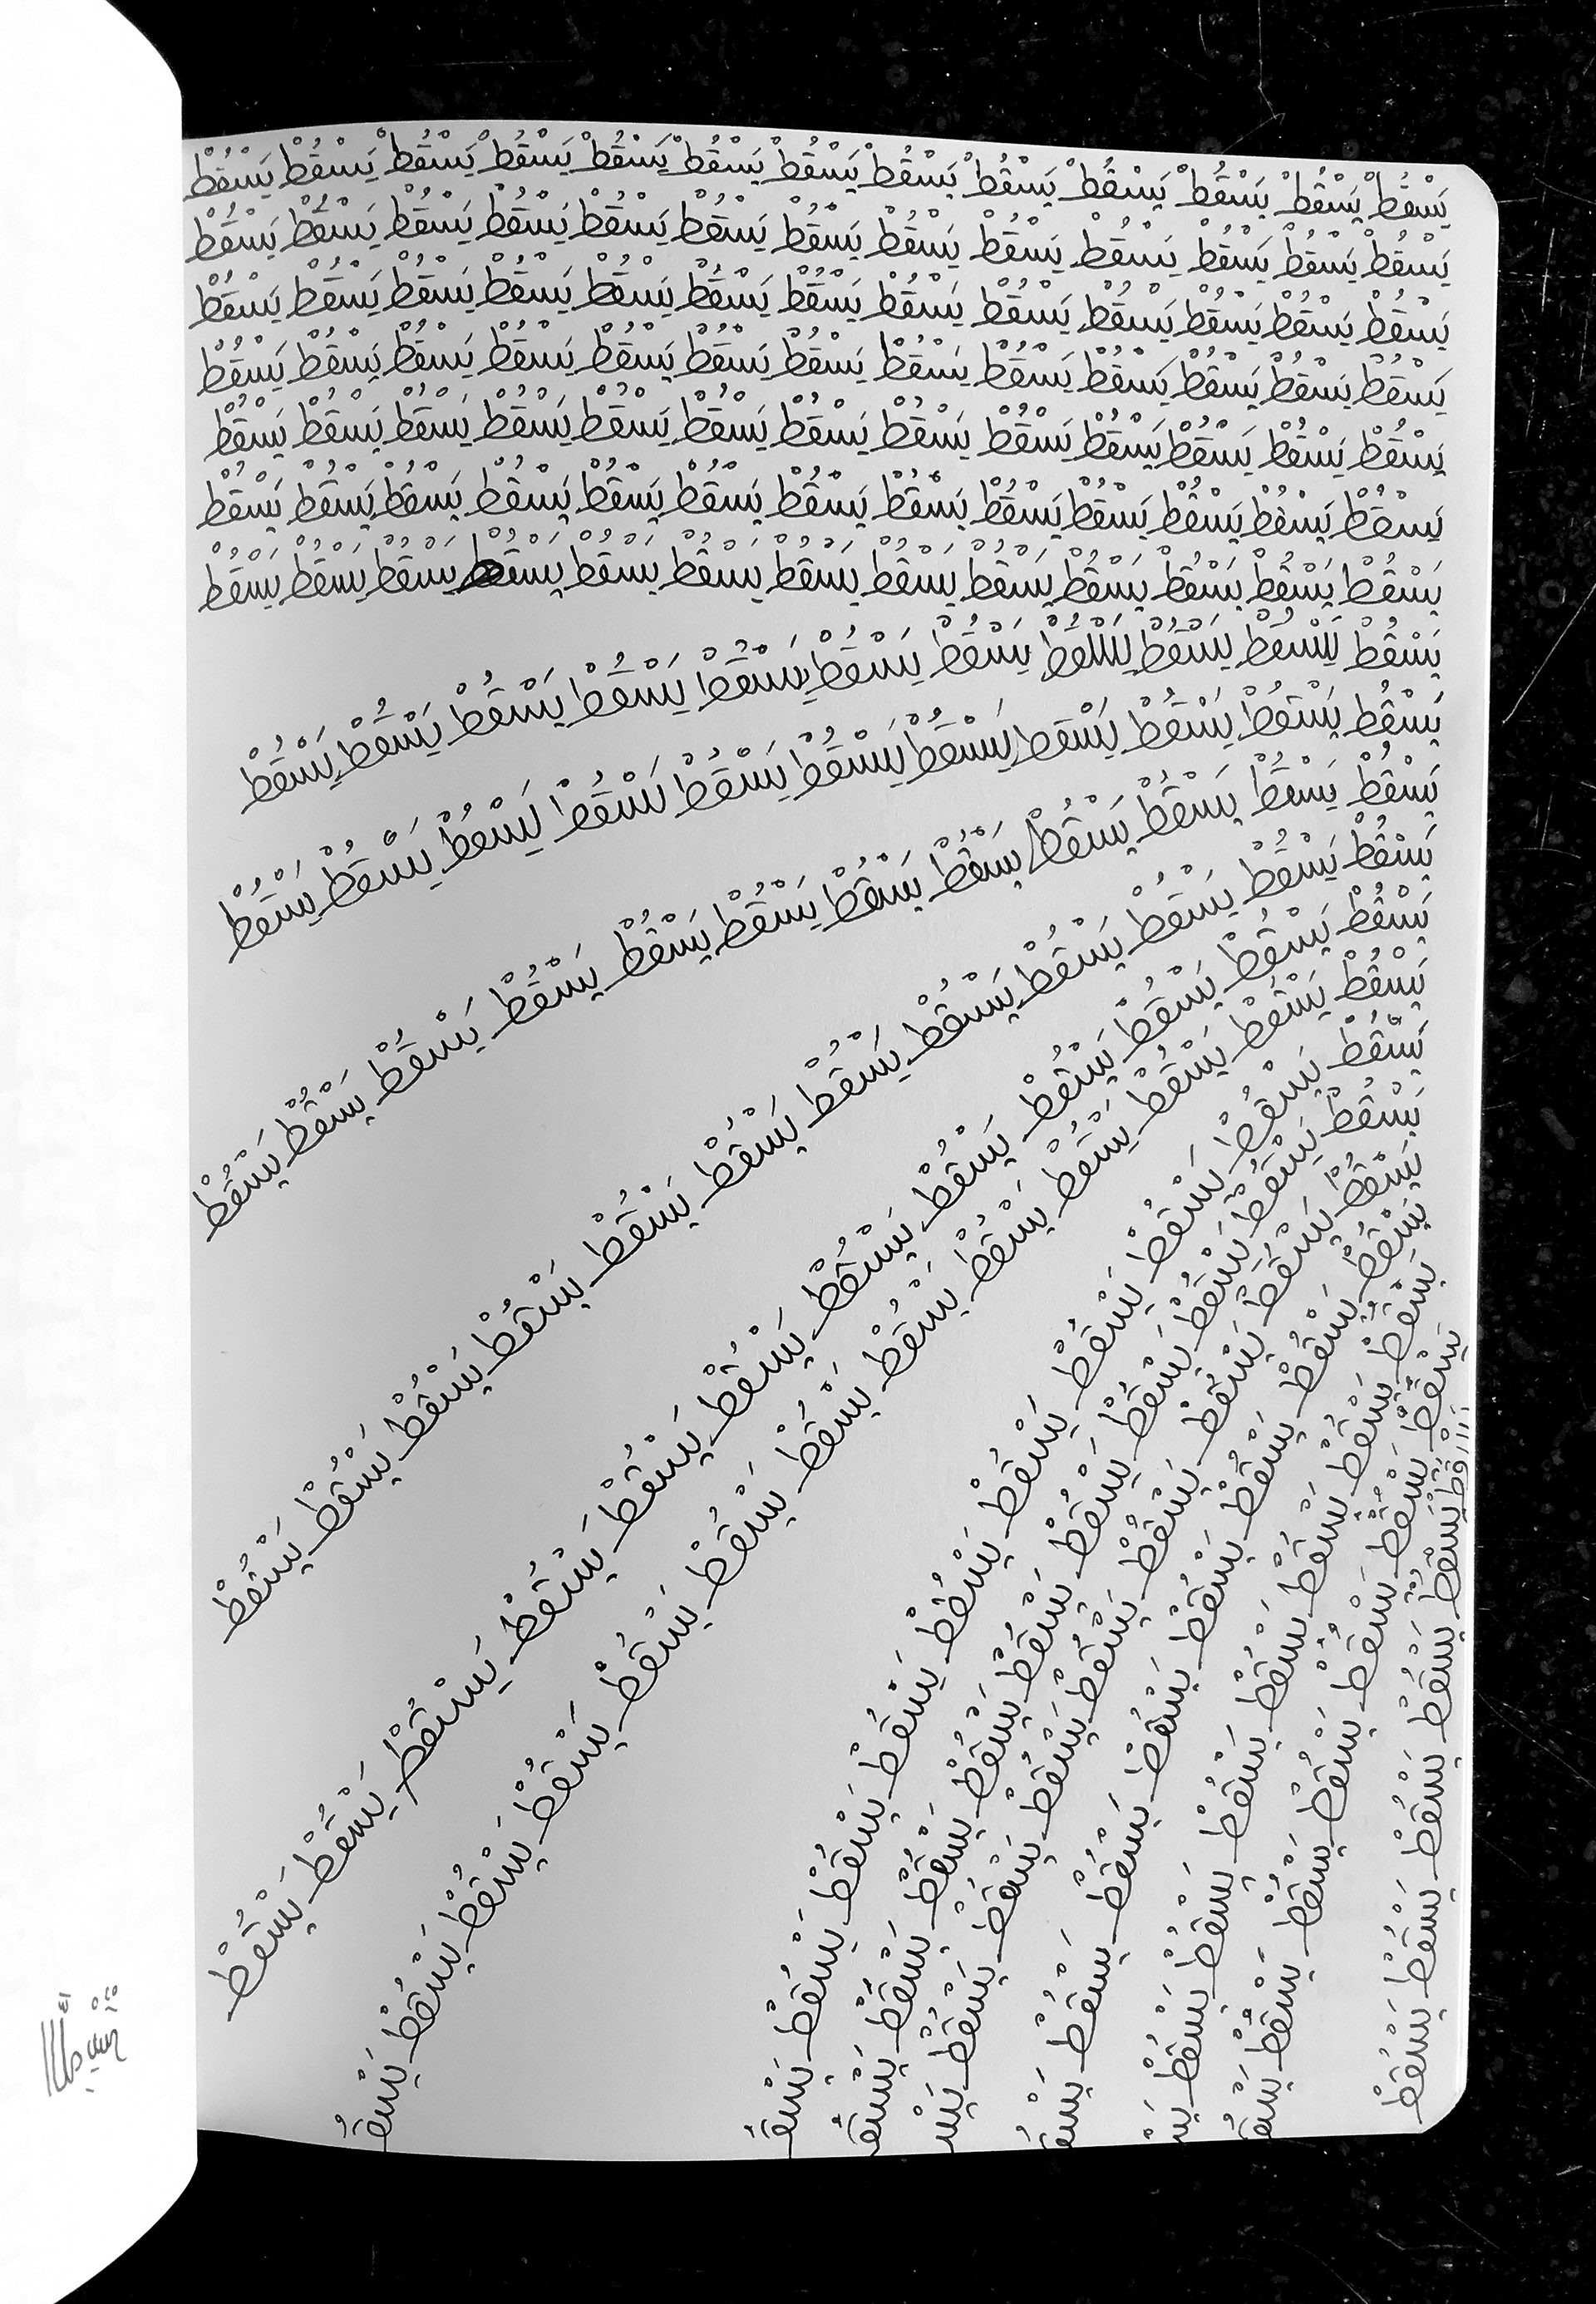 يَسْقُطْ يَسْقُطْ يَسْقُطْ يَسْقُطْ يَسْقُطْ يَسْقُطْ يَسْقُطْ يَسْقُطْ يَسْقُطْ يَسْقُطْ يَسْقُطْ يَسْقُطْ يَسْقُطْ
يَسْقُطْ يَسْقُطْ يَسْقُطْ يَسْقُطْ يَسْقُطْ يَسْقُطْ يَسْقُطْ يَسْقُطْ يَسْقُطْ يَسْقُطْ يَسْقُطْ يَسْقُطْ يَسْقُطْ
يَسْقُطْ يَسْقُطْ يَسْقُطْ يَسْقُطْ يَسْقُطْ يَسْقُطْ يَسْقُطْ يَسْقُطْ يَسْقُطْ يَسْقُطْ يَسْقُطْ يَسْقُطْ يَسْقُطْ
يَسْقُطْ يَسْقُطْ يَسْقُطْ يَسْقُطْ يَسْقُطْ يَسْقُطْ يَسْقُطْ يَسْقُطْ يَسْقُطْ يَسْقُطْ يَسْقُطْ يَسْقُطْ يَسْقُطْ
يَسْقُطْ يَسْقُطْ يَسْقُطْ يَسْقُطْ يَسْقُطْ يَسْقُطْ يَسْقُطْ يَسْقُطْ يَسْقُطْ يَسْقُطْ يَسْقُطْ يَسْقُطْ يَسْقُطْ
يَسْقُطْ يَسْقُطْ يَسْقُطْ يَسْقُطْ يَسْقُطْ يَسْقُطْ يَسْقُطْ يَسْقُطْ يَسْقُطْ يَسْقُطْ يَسْقُطْ يَسْقُطْ يَسْقُطْ
يَسْقُطْ يَسْقُطْ يَسْقُطْ يَسْقُطْ يَسْقُطْ يَسْقُطْ يَسْقُطْ يَسْقُطْ يَسْقُطْ يَسْقُطْ يَسْقُطْ يَسْقُطْ يَسْقُطْ
يَسْقُطْ يَسْقُطْ يَسْقُطْ يَسْقُطْ يَسْقُطْ يَسْقُطْ يَسْقُطْ يَسْقُطْ يَسْقُطْ يَسْقُطْ يَسْقُطْ
يَسْقُطْ يَسْقُطْ يَسْقُطْ يَسْقُطْ يَسْقُطْ يَسْقُطْ يَسْقُطْ يَسْقُطْ يَسْقُطْ يَسْقُطْ يَسْقُطْ
يَسْقُطْ يَسْقُطْ يَسْقُطْ يَسْقُطْ يَسْقُطْ يَسْقُطْ يَسْقُطْ يَسْقُطْ يَسْقُطْ يَسْقُطْ يَسْقُطْ يَسْقُطْ
يَسْقُطْ يَسْقُطْ يَسْقُطْ يَسْقُطْ يَسْقُطْ يَسْقُطْ يَسْقُطْ يَسْقُطْ يَسْقُطْ يَسْقُطْ يَسْقُطْ يَسْقُطْ
يَسْقُطْ يَسْقُطْ يَسْقُطْ يَسْقُطْ يَسْقُطْ يَسْقُطْ يَسْقُطْ يَسْقُطْ يَسْقُطْ يَسْقُطْ يَسْقُطْ يَسْقُطْ
يَسْقُطْ يَسْقُطْ يَسْقُطْ يَسْقُطْ يَسْقُطْ يَسْقُطْ يَسْقُطْ يَسْقُطْ يَسْقُطْ يَسْقُطْ يَسْقُطْ يَسْقُطْ يَسْقُ
يَسْقُطْ يَسْقُطْ يَسْقُطْ يَسْقُطْ يَسْقُطْ يَسْقُطْ يَسْقُطْ يَسْقُطْ يَسْقُطْ يَسْقُ
يَسْقُطْ يَسْقُطْ يَسْقُطْ يَسْقُطْ يَسْقُطْ يَسْقُطْ يَسْقُطْ يَسْقُطْ يَسْقُطْ يَسْقُ
يَسْقُطْ يَسْقُطْ يَسْقُطْ يَسْقُطْ يَسْقُطْ يَسْقُطْ يَسْقُطْ يَسْقُطْ يَسْ
يَسْقُطْ يَسْقُطْ يَسْقُطْ يَسْقُطْ يَسْقُطْ يَسْقُطْ يَسْقُطْ يَسْقُ
يَسْقُطْ يَسْقُطْ يَسْقُطْ يَسْقُطْ يَسْقُطْ يَسْقُطْ يَسْقُطْ يَسْ
يَسْقُطْ يَسْقُطْ يَسْقُطْ يَسْقُطْ يَسْقُطْ يَسْقُطْ يَسْقُ
يَسْقُطْ يَسْقُطْ يَسْقُطْ يَسْقُطْ يَسْقُطْ